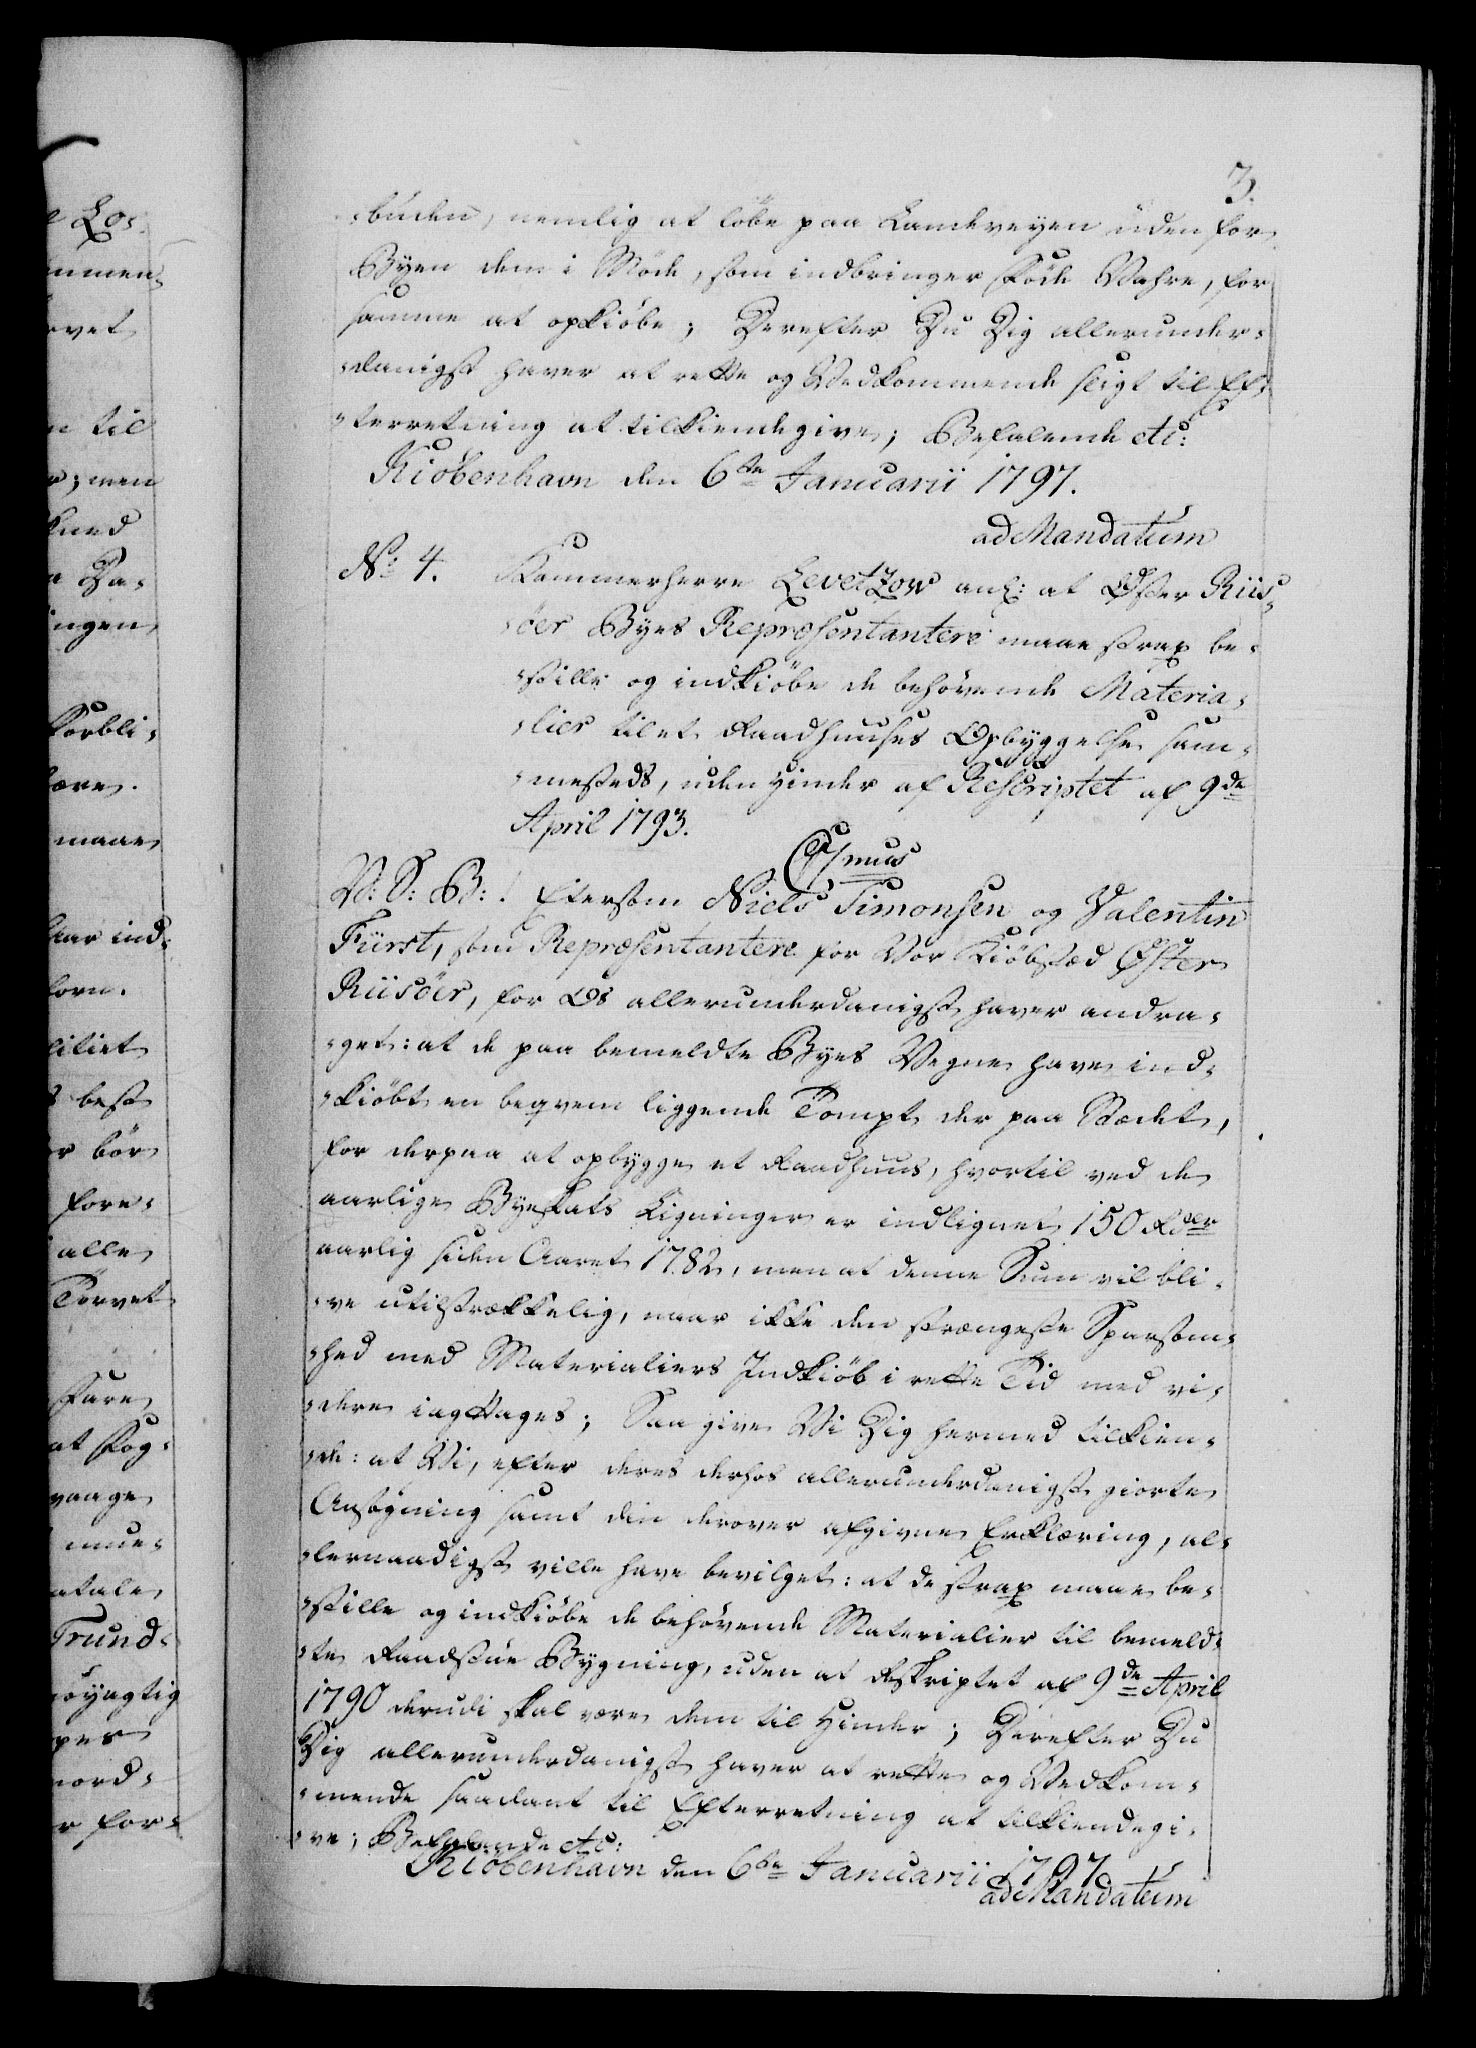 3.
-buden, nemlig at løbe paa Landeveyen uden for
Byen dem i Møde, som indbringer Føde Vahre, for
samme at opkiøbe; Derefter Du Dig allerunder-
-danigst haver at rette og Vedkommende sligt til Ef-
-terretning at tilkiendegive; Befalende etc:
Kiøbenhavn den 6te Januarii 1797.
ad Mandatum
No 4. Kammerherre Levetzow anl: at Øster Riis-
-øer Byes Repræsentantere maae strax be-
-stille og indkiøbe de behøvende Materia-
-lier til et Raadhuuses Opbyggelse sam-
-mesteds, uden Hinder af Rescriptet af 9de
April 1793.
C7mus
V: S: B: . Eftersom Niels Simonsen og Valentin
Fürst, som Repræsentantere for Vor Kiøbstæd Øster
Riisøer, for Os allerunderdanigst haver andra-
-get: at de paa bemeldte Byes Vegne have ind-
-kiøbt en beqvem liggende Tompt der paa Stædet,
for derpaa at opbygge et Raadhuus, hvortil ved de
aarlige Byeskats Ligninger er indlignet 150 Rdler
aarlig siden Aaret 1782, men at denne Sum vil bli-
-ve utilstrækkelig, naar ikke den strængeste Sparsom-
-hed med Materialiers Indkiøb i rette Tid med vi-
-dere iagttages; Saa give Vi Dig hermed tilkien-
-de: at Vi, efter deres derhos allerunderdanigst giorte
Ansøgning samt din derover afgivne Erklæring, al-
-lernaadigst ville have bevilget: at de strax maae be-
-stille og indkiøbe de behøvende Materialier til bemeld-
-te Raadstue Bygning, uden at Reskriptet af 9de April
1790 derudi skal være dem til Hinder; Derefter Du
Dig allerunderdanigst haver at rette og Vedkom-
-mende saadant til Efterretning at tilkiendegi-
-ve; Befalende etc:
Kiøbenhavn den 6te Januarii 1797
ad Mandatum